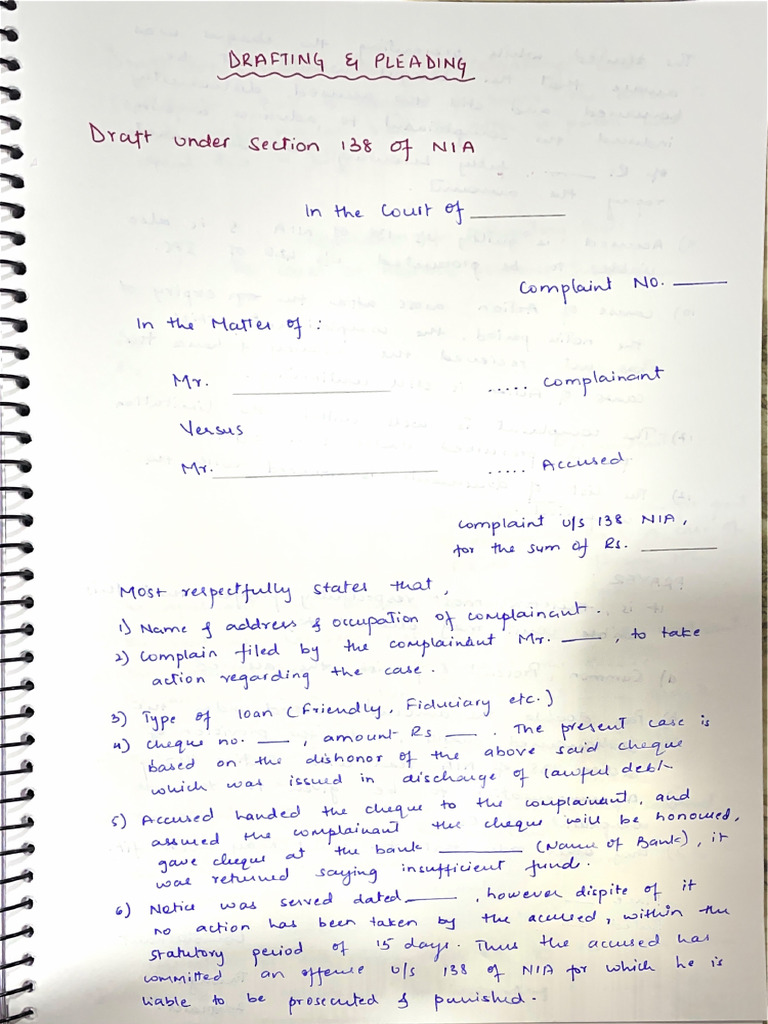 DRAFTING & PLEADING
Draft under Section 138 of NIA
In the Court of ________
Complaint NO. ____
In the Matter of :
Mr. ____________ ..... Complainant
Versus
Mr. ____________ ..... Accused
Complaint u/s 138 NIA,
for the sum of Rs. ______
Most respectfully states that,
1) Name & address & occupation of complainant.
2) Complain filed by the complainant Mr. ____, to take
action regarding the case.
3) Type of loan (Friendly, Fiduciary etc.)
4) Cheque no. ___, amount Rs ___. The present case is
based on the dishonor of the above said cheque
which was issued in discharge of lawful debt
5) Accused handed the cheque to the complainant, and
assured the complainant the cheque will be honoured,
gave cheque at the bank ________ (Name of Bank), it
was returned saying insufficient fund.
6) Notice was served dated ____, however dispite of it
no action has been taken by the accused, within the
statutory period of 15 days. Thus the accused has
committed an offense u/s 138 of NIA for which he is
liable to be prosecuted & punished.